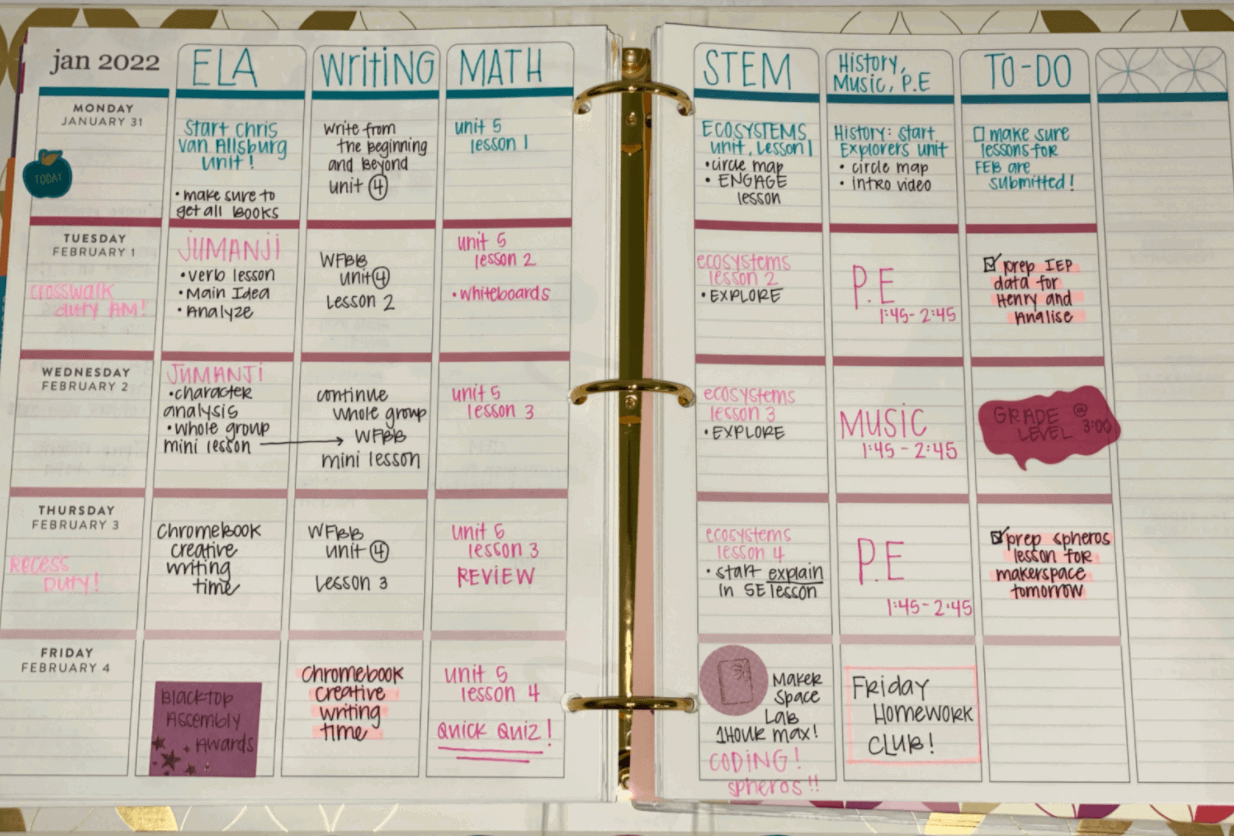 jan 2022
ELA
Writing
MATH
STEM
History,
Music, P.E
TO-DO
MONDAY
JANUARY 31
TODAY
Start Chris
van Allsburg
unit!
• make sure to
get all books
Write from
the beginning
and Beyond
unit 4
unit 5
lesson 1
ECOSYSTEMS
unit, Lesson 1
• circle map
• ENGAGE
lesson
History: start
Explorers unit
• circle map
• Intro video
make sure
lessons for
FEB are
submitted!
TUESDAY
FEBRUARY 1
crosswalk
duty AM!
JUMANJI
• verb lesson
• Main Idea
• Analyze
WFBB
unit 4
Lesson 2
unit 5
lesson 2
• whiteboards
ecosystems
lesson 2
• EXPLORE
P.E
1:45-2:45
prep IEP
data for
Henry and
Analise
WEDNESDAY
FEBRUARY 2
JUMANJI
• character
analysis
• whole group
mini lesson
continue
whole group
WFBB
mini lesson
unit 5
lesson 3
ecosystems
lesson 3
• EXPLORE
MUSIC
1:45-2:45
GRADE @
LEVEL 3:00
THURSDAY
FEBRUARY 3
Recess
Duty!
Chromebook
creative
writing
time
WFBB
unit 4
Lesson 3
unit 5
lesson 3
REVIEW
ecosystems
lesson 4
• start explain
in 5E lesson
P.E
1:45-2:45
prep spheros
lesson for
makerspace
tomorrow
FRIDAY
FEBRUARY 4
Blacktop
Assembly
Awards
Chromebook
creative
writing
time
unit 5
lesson 4
Quick Quiz!
Maker
Space
Lab
1 HOUR max!
CODING!
spheros!!
Friday
Homework
Club!